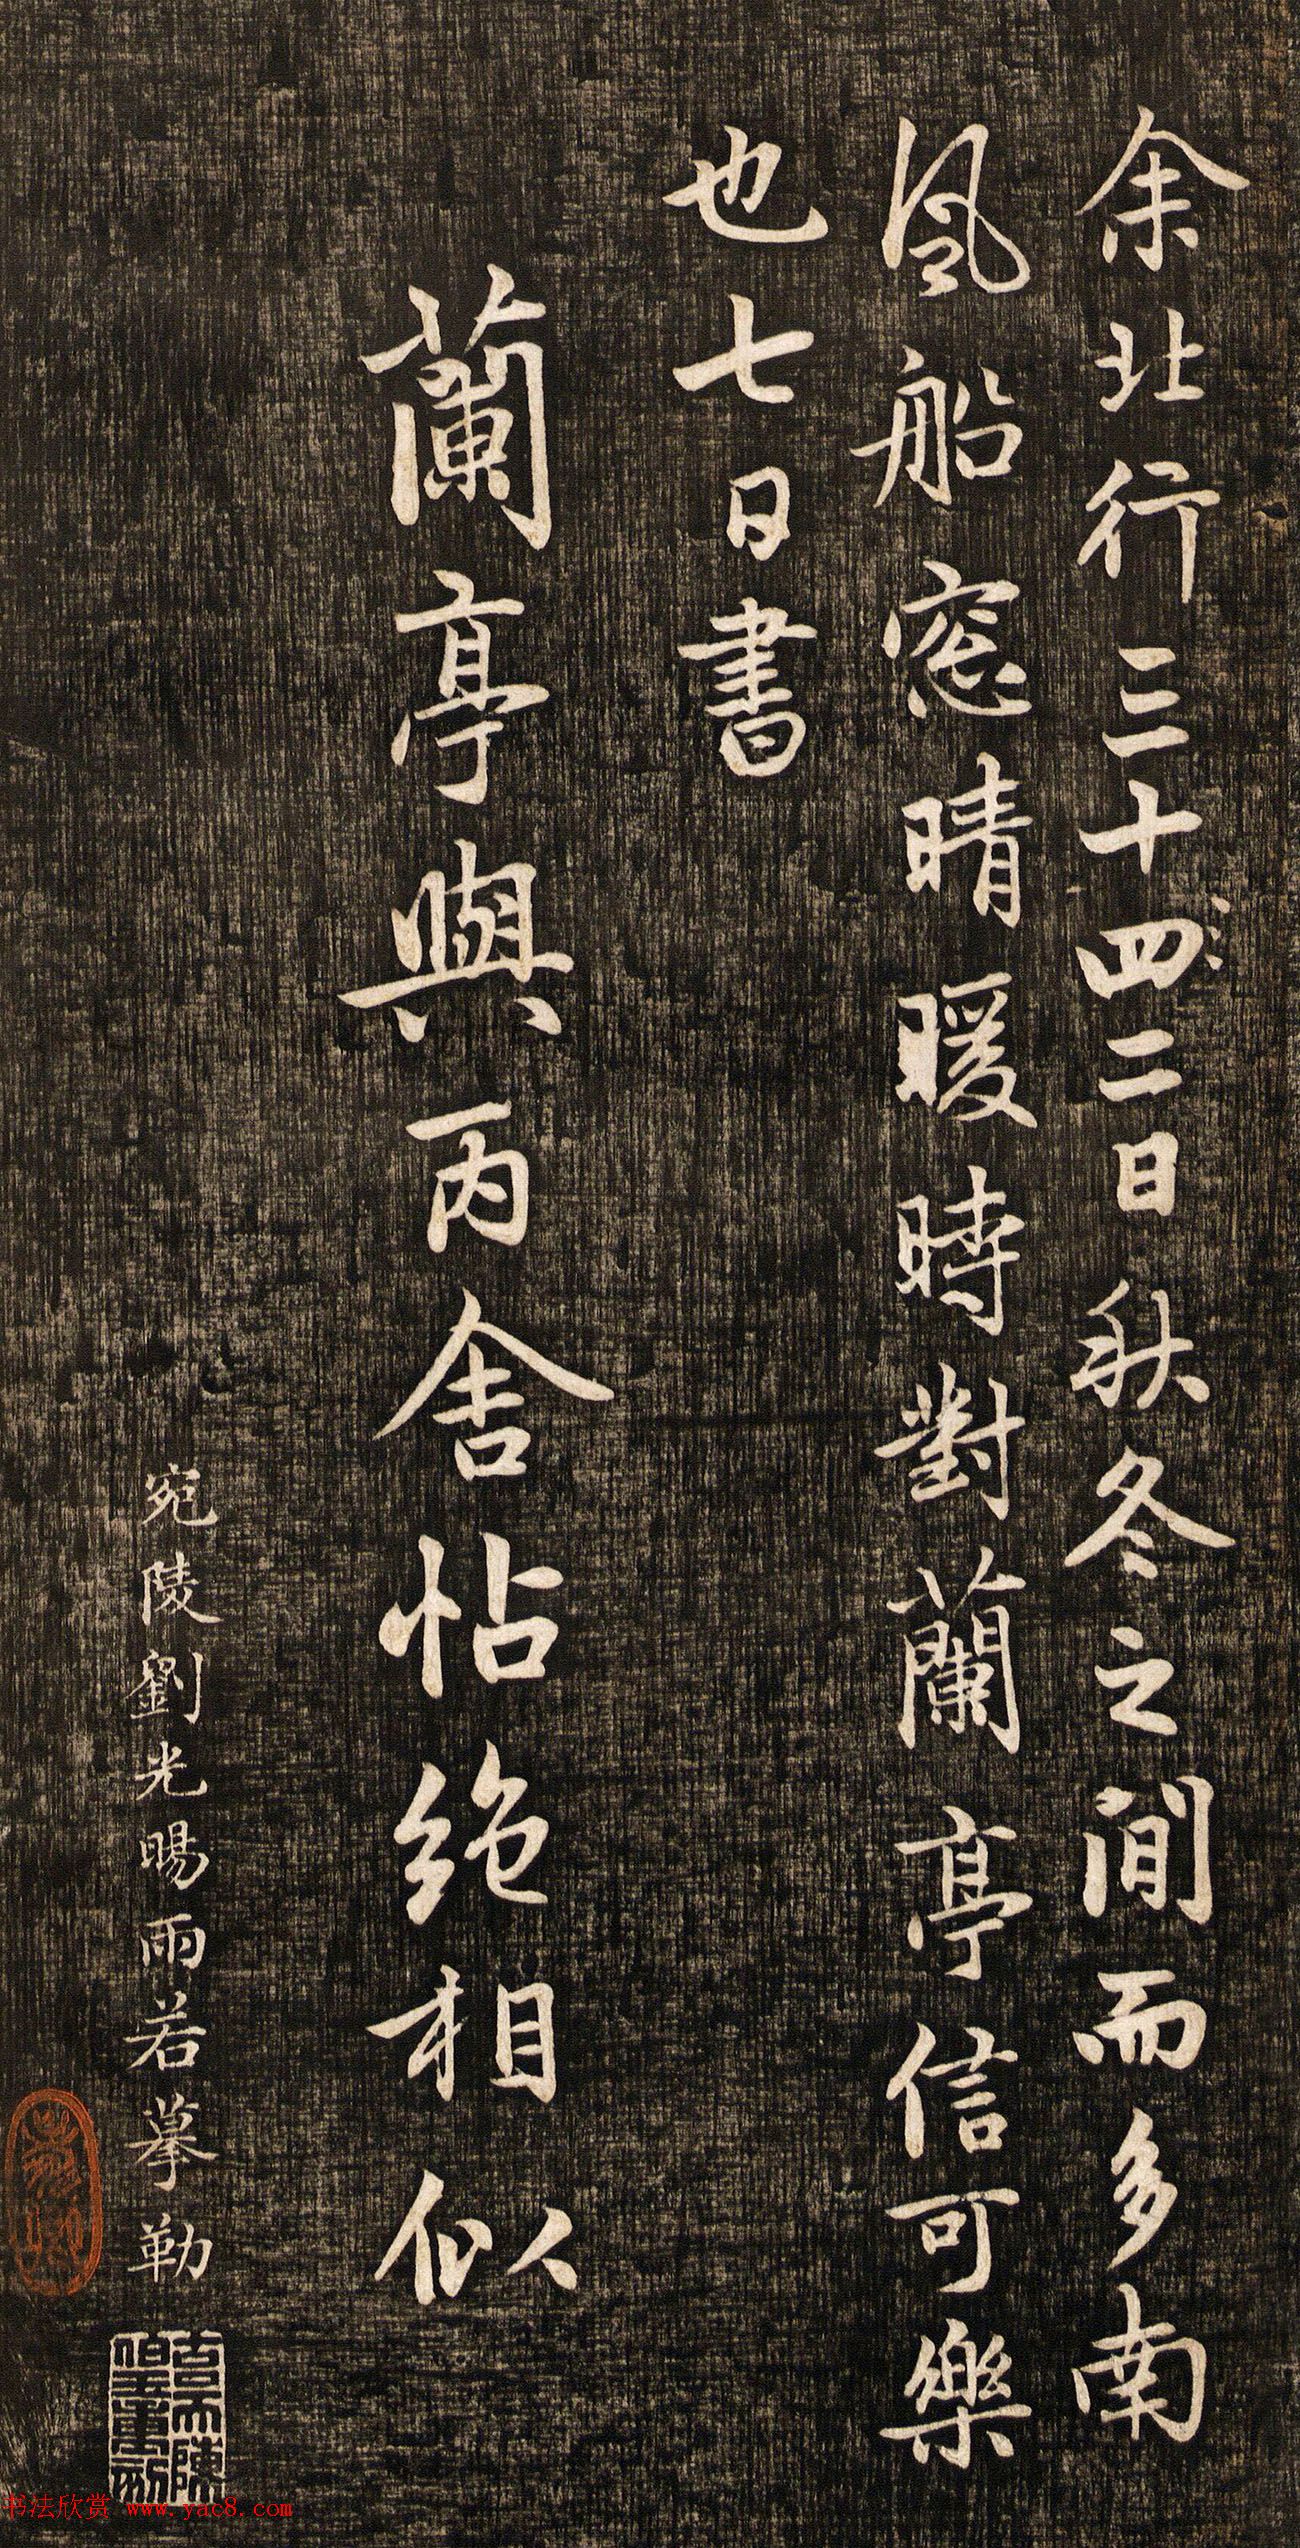 余北行三十四二日秋冬之間而多南
風船窓晴暖時對蘭亭信可樂
也七日書
蘭亭與丙舍帖絶相似
宛陵劉光暘雨若摹勒
书法欣赏 www.yac8.com